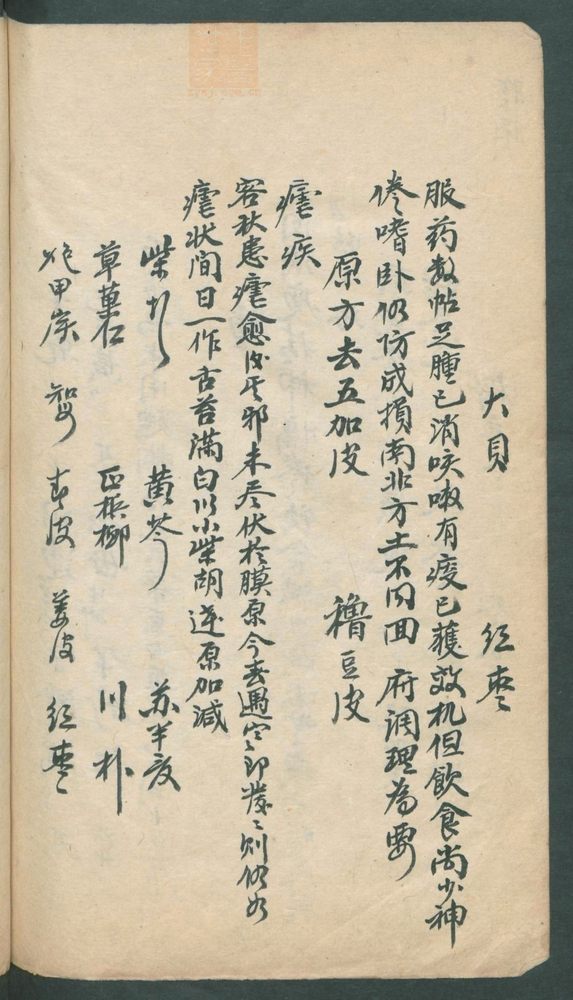 大貝　紅棗
服药数帖足腫已消咳嗽有痰已獲效机但飲食尚少神
倦嗜卧似防成損南北方土不同回府調理為要
原方去五加皮　穭豆皮
瘧疾
客秋患瘧愈後其邪未尽伏於膜原今春遇空即發々則仍如
瘧状间日一作舌苔滿白以小柴胡達原加減
柴胡　黄芩　苏半夏
草菓仁　正梹榔　川朴
炮甲炭　知母　青皮　姜皮　红棗